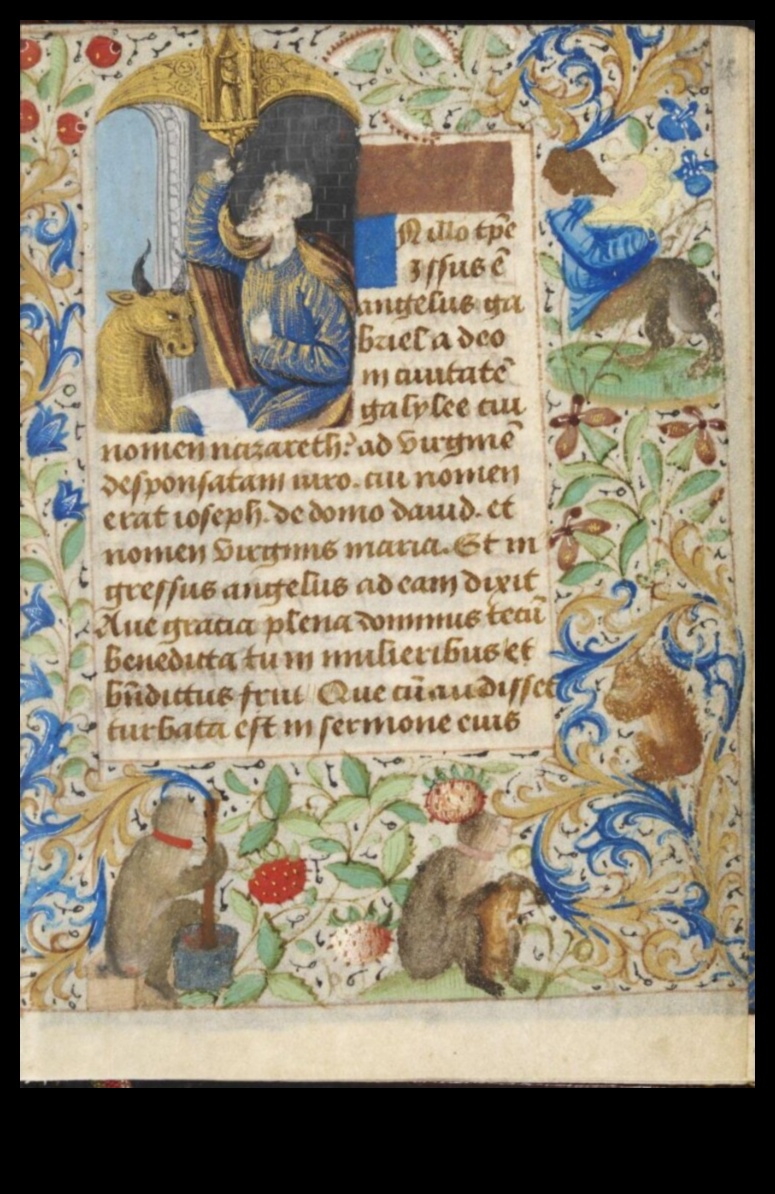 N illo tp̄e
Issus ē
angelus ga
briel a deo
in ciuitatē
galylee cui
nomen nazareth: ad virginē
desponsatam uiro. cui nomen
erat ioseph. de domo dauid. et
nomen virginis maria. Et in
gressus angelus ad eam dixit
Aue gracia plena dominus tecū
benedicta tu in mulieribus et
bn̄dictus fruc Que cū audisset
turbata est in sermone eius